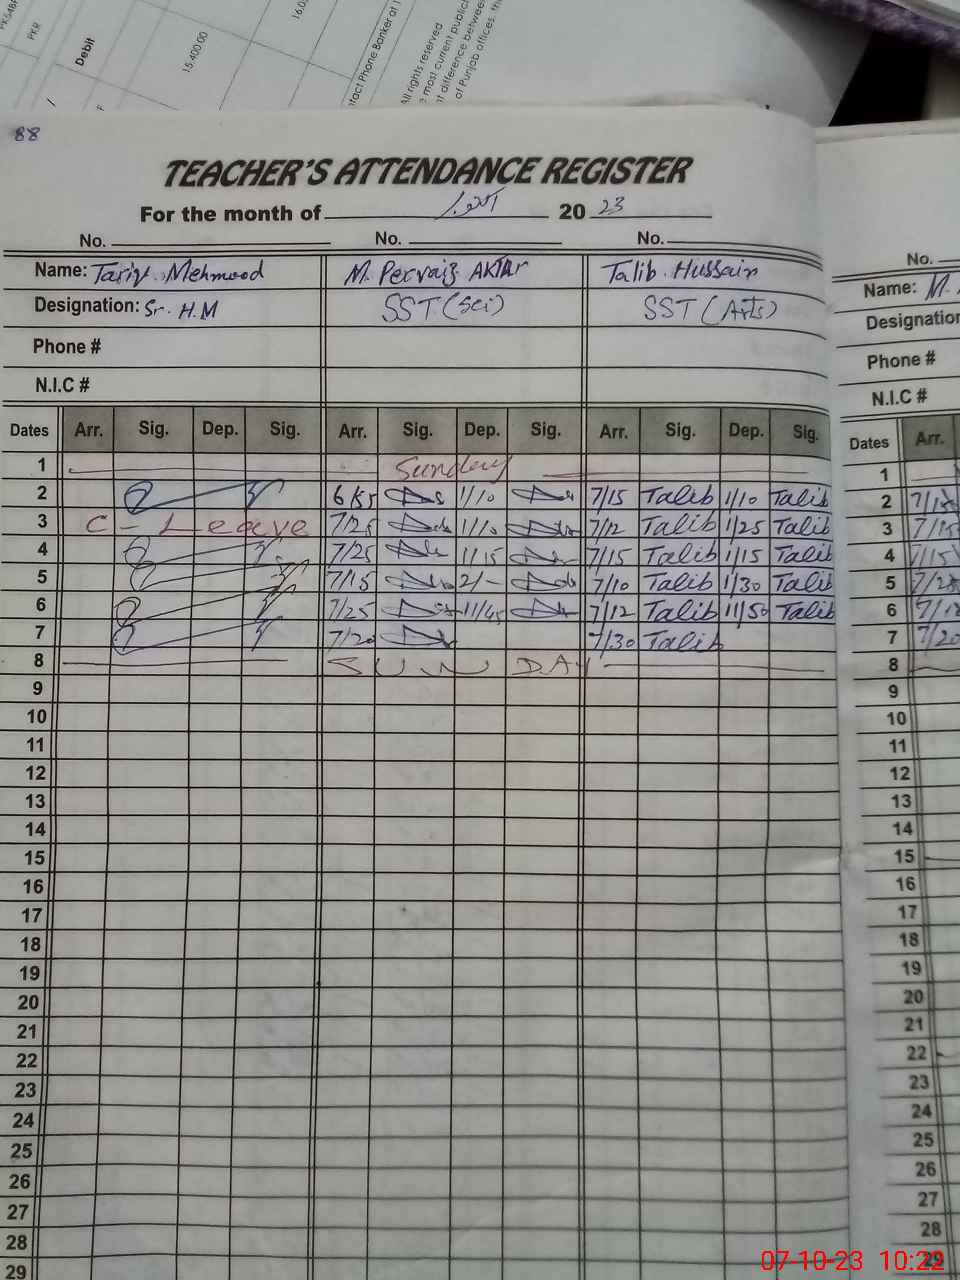 PKR
Debit
15,400.00
16.0
ntact Phone Banker at 1
All rights reserved
most current public
difference between
of Punjab offices.
88
TEACHER'S ATTENDANCE REGISTER
For the month of اکتوبر 20 23
No. No. No.
Name: Tariq Mehmood M. Pervaiz AKtar Talib Hussain
Designation: Sr. H.M SST (Sci) SST (Arts)
Phone #
N.I.C #
Dates Arr. Sig. Dep. Sig. Arr. Sig. Dep. Sig. Arr. Sig. Dep. Sig.
1 Sunday
2 6/55 1/10 7/15 Talib 1/10 Talib
3 C - Leave 7/25 1/10 7/12 Talib 1/25 Talib
4 7/25 1/15 7/15 Talib 1/15 Talib
5 7/15 2/- 7/10 Talib 1/30 Talib
6 7/25 11/45 7/12 Talib 11/50 Talib
7 7/20 7/30 Talib
8 SUNDAY
9
10
11
12
13
14
15
16
17
18
19
20
21
22
23
24
25
26
27
28
29
No.
Name: M.
Designation
Phone #
N.I.C #
Dates Arr.
1
2 7/15
3 7/15
4 7/15
5
6
7 7/20
8
9
10
11
12
13
14
15
16
17
18
19
20
21
22
23
24
25
26
27
28
29
07-10-23 10:22